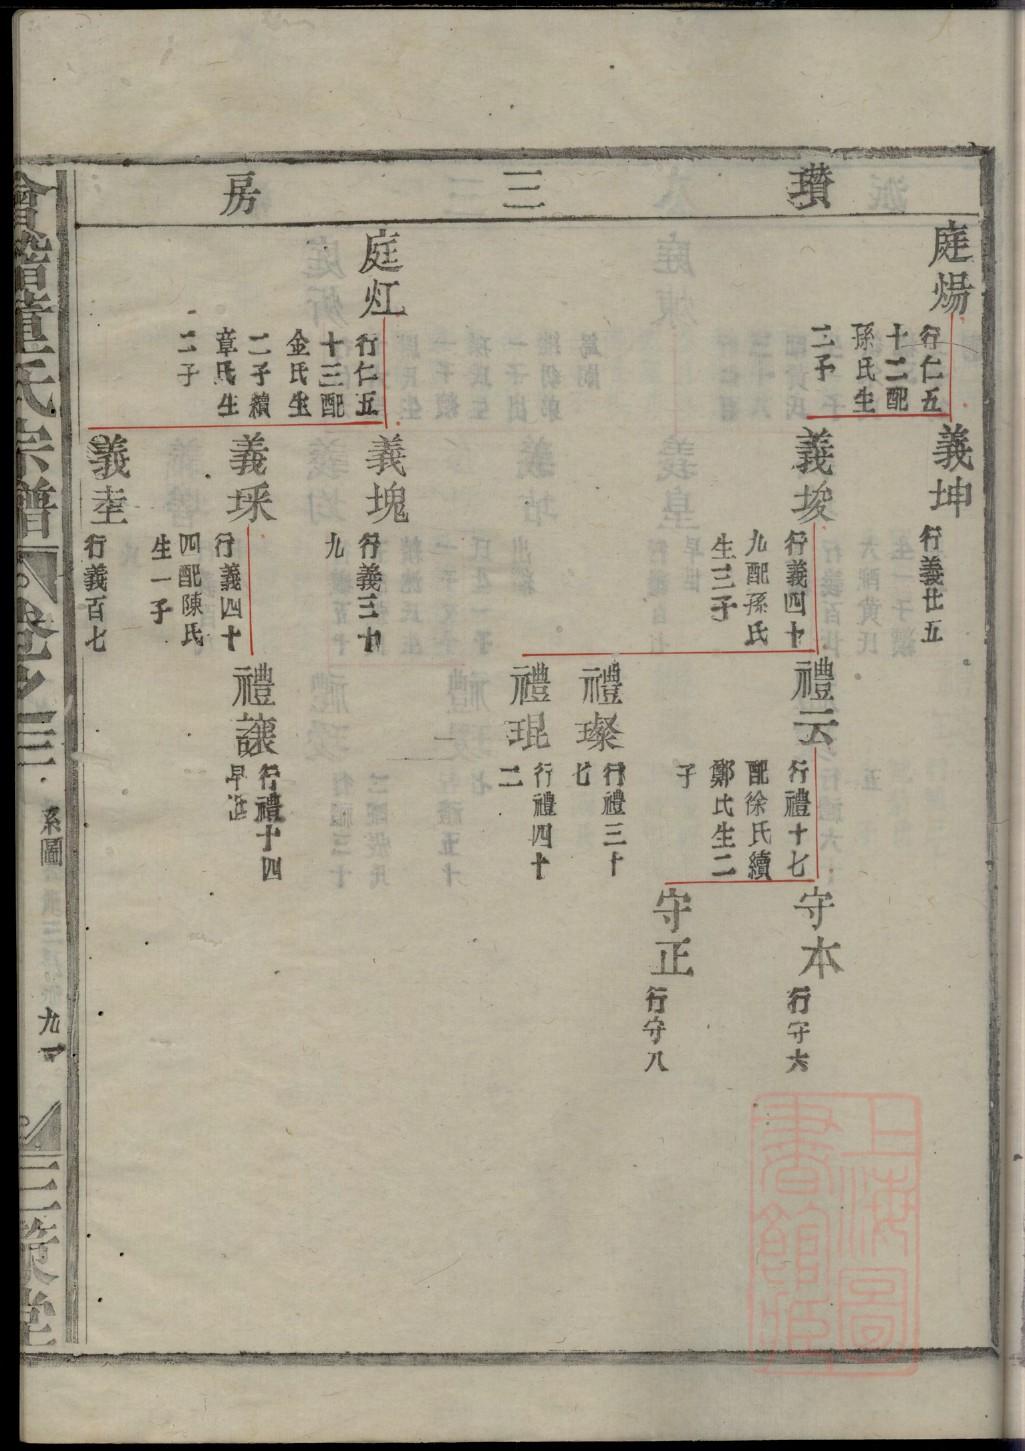 瓚三房
庭煬
行仁五
十二配
孫氏生
二子
義坤
行義廿五
義埈
行義四十
九配孫氏
生三子
禮云
行禮十七
配徐氏續
鄭氏生二
子
守本
行守六
守正
行守八
禮璨
行禮三十
七
禮琨
行禮四十
二
庭灴
行仁五
十三配
金氏生
二子續
章氏生
二子
義塊
行義三十
九
義埰
行義四十
四配陳氏
生一子
禮讓
行禮十四
早逝
義堼
行義百七
會稽章氏宗譜
卷之三
系圖
九一
三策堂
上海圖
書館藏